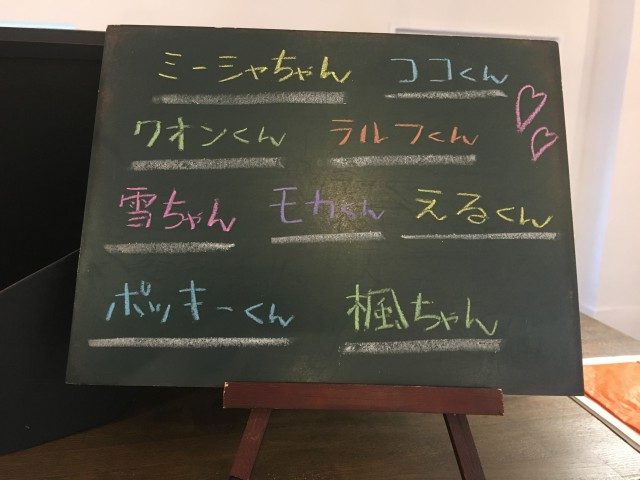 ミーシャちゃん ココくん
クオンくん ラルフくん
雪ちゃん モカくん えるくん
ポッキーくん 楓ちゃん